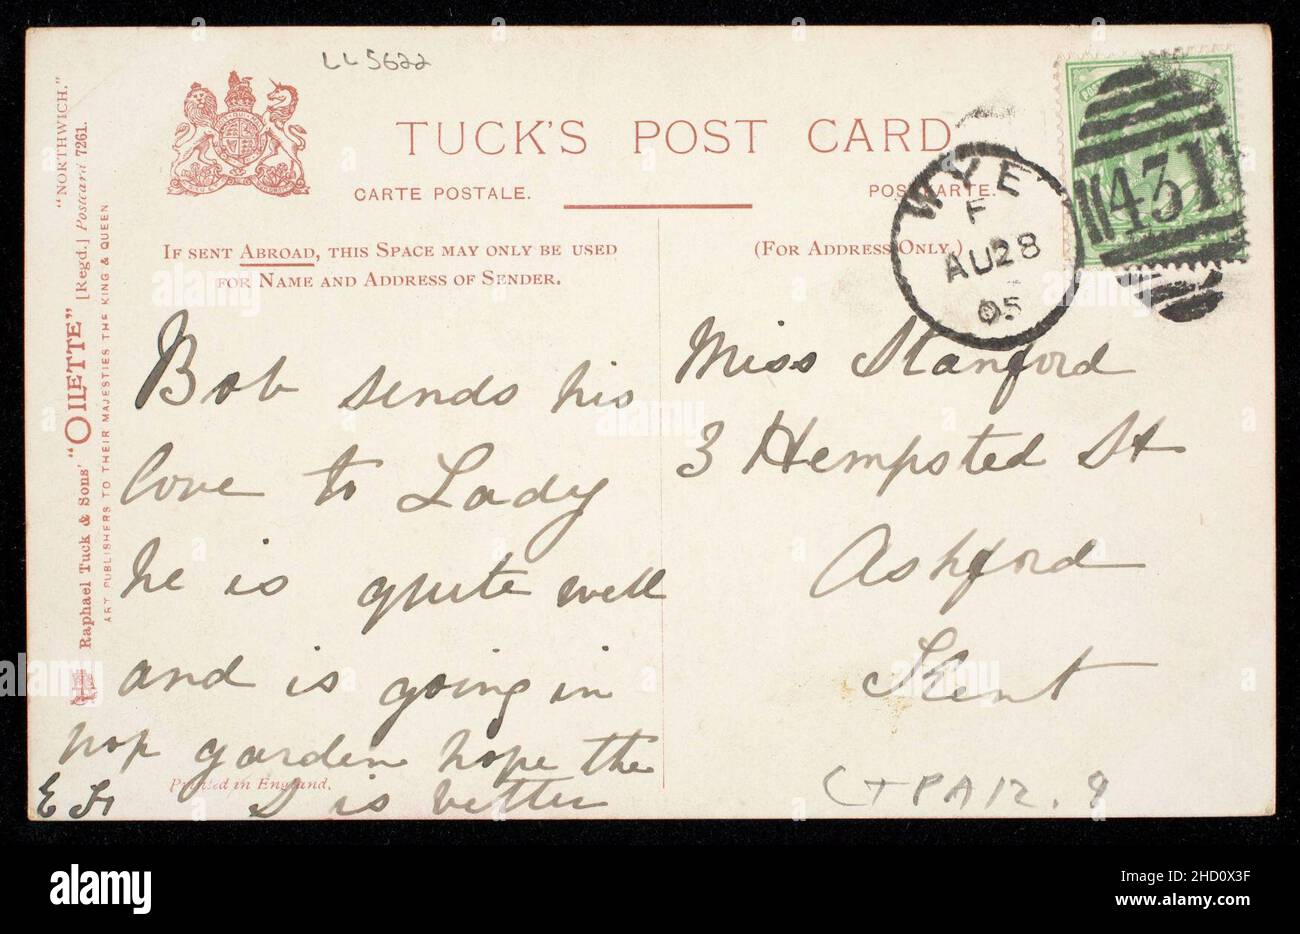 LL5622
TUCK'S POST CARD
CARTE POSTALE.
POSTKARTE.
IF SENT ABROAD, THIS SPACE MAY ONLY BE USED
FOR NAME AND ADDRESS OF SENDER.
(FOR ADDRESS ONLY.)
WYE
F
AU28
05
431
Bob sends his
love to Lady
he is quite well
and is going in
hop garden hope the
E
D is better
Miss Stanford
3 Hempsted St
Ashford
Kent
Printed in England.
"NORTHWICH."
Raphael Tuck & Sons' "OILETTE" [Regd.] Postcard 7261.
ART PUBLISHERS TO THEIR MAJESTIES THE KING & QUEEN
alamy
Image ID: 2HD0X3F
www.alamy.com